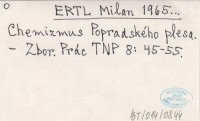 o
ERTL Milan 1965...
Chemizmus Popradského plesa.
– Zbor. Prác TNP 8: 45-55.